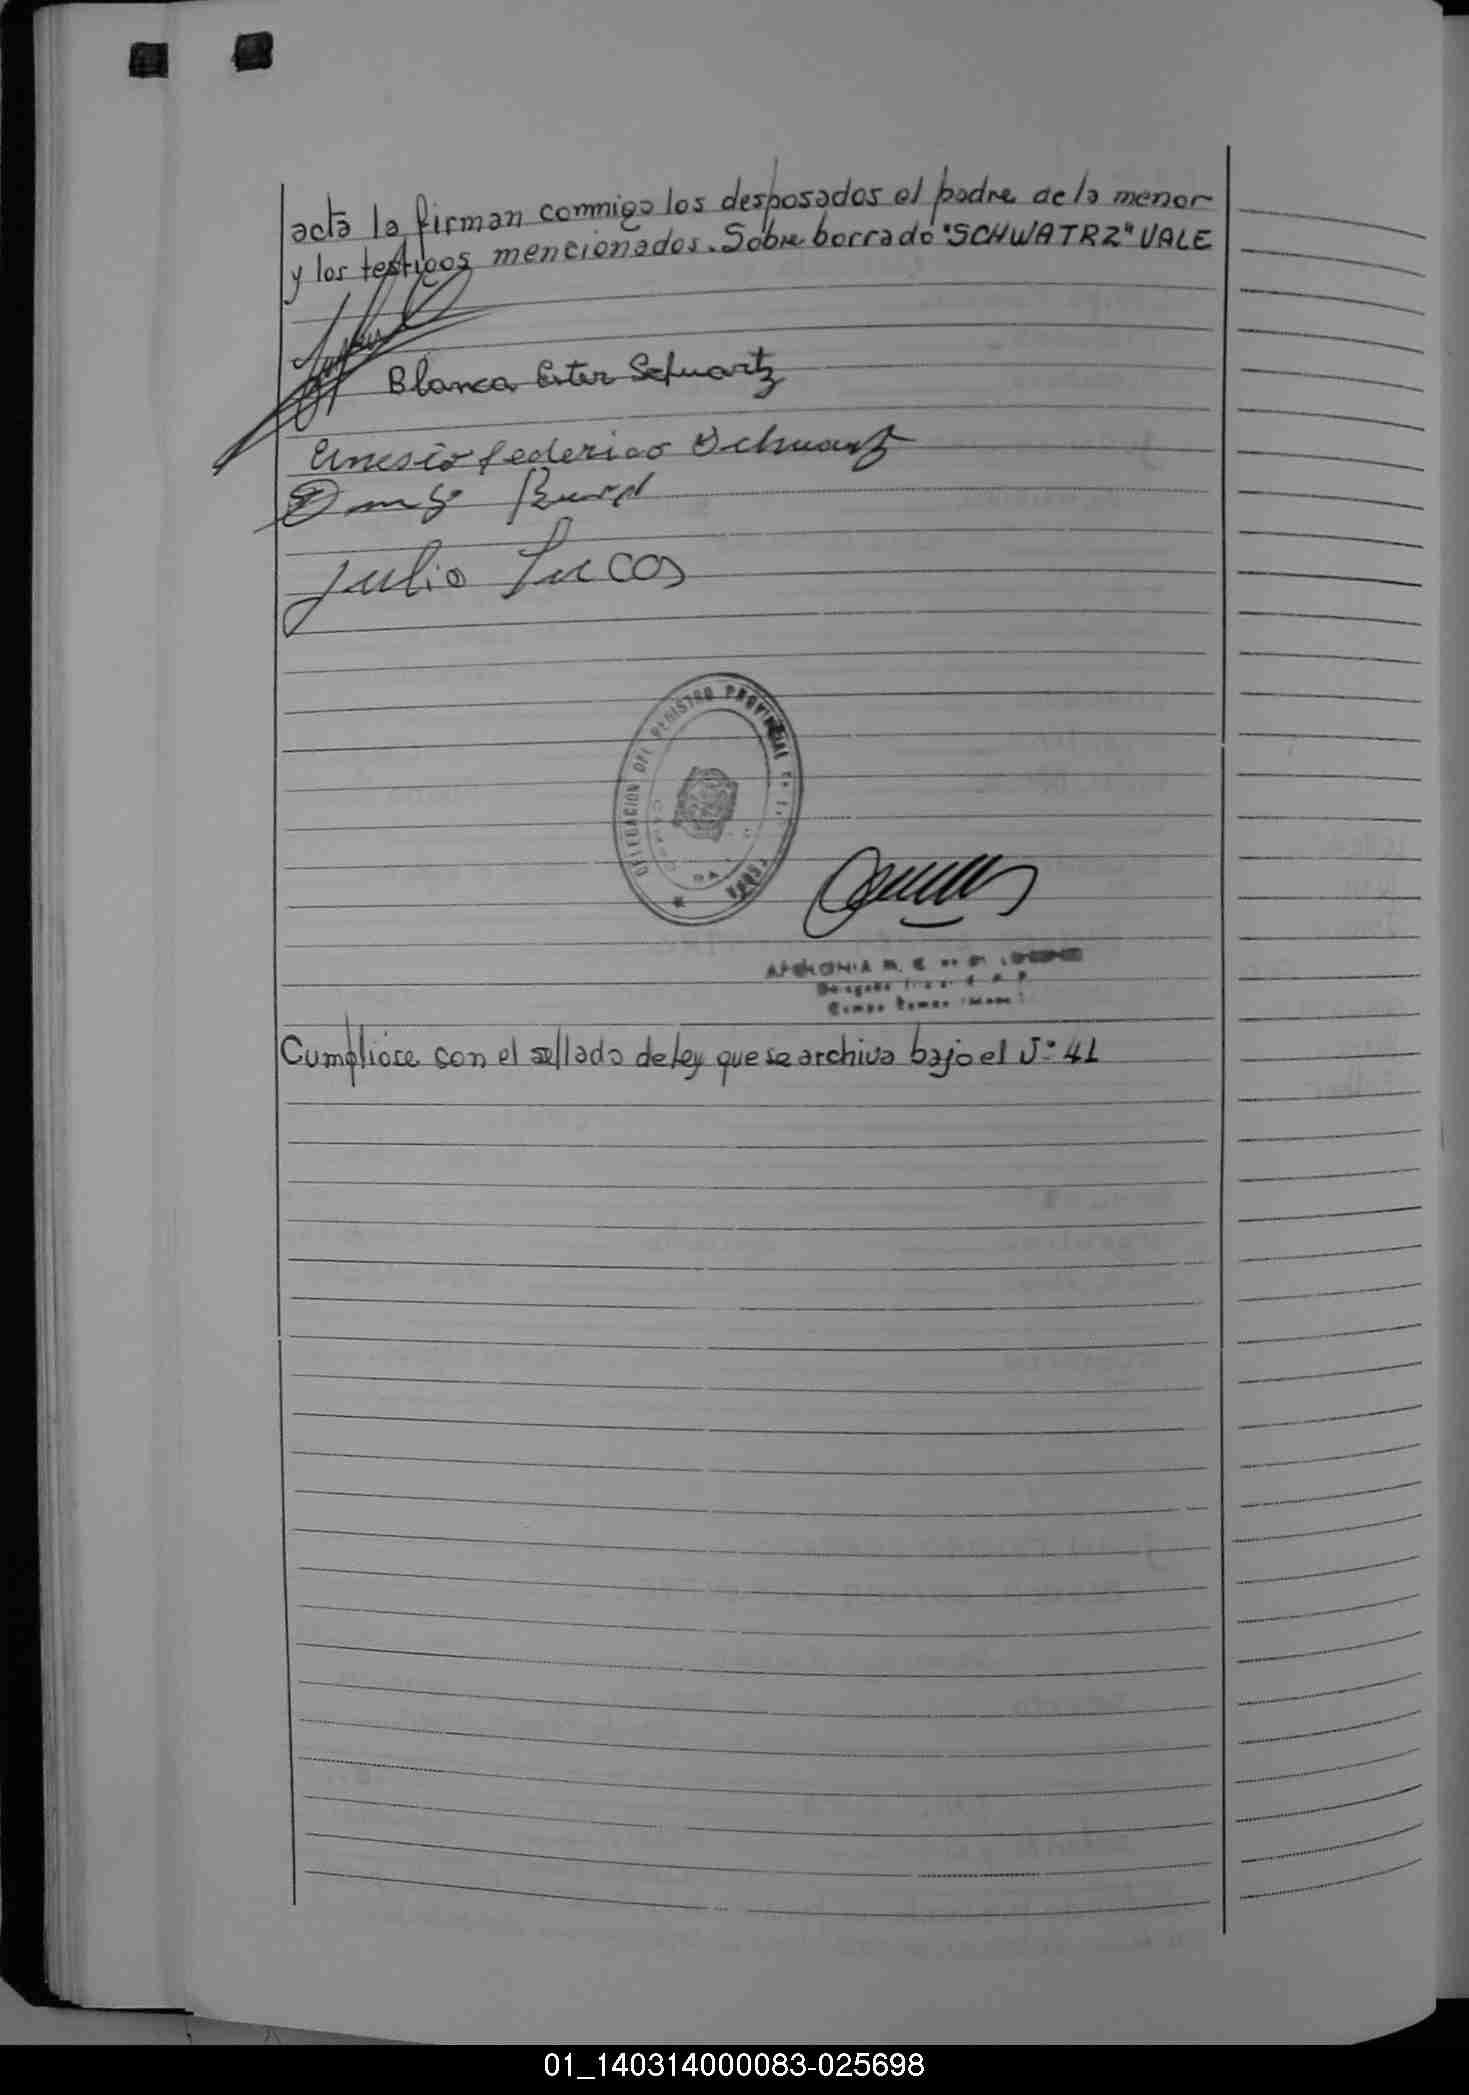 acta la firman conmigo los desposados el padre de la menor
y los testigos mencionados. Sobre borrado "SCHWATRZ" VALE
Blanca Ester Schuartz
Ernesto Federico Schuartz
Julio Lucas
DELEGACION DEL REGISTRO PROVINCIAL
Cumplióse con el sellado de ley que se archiva bajo el Nº 41
01_140314000083-025698